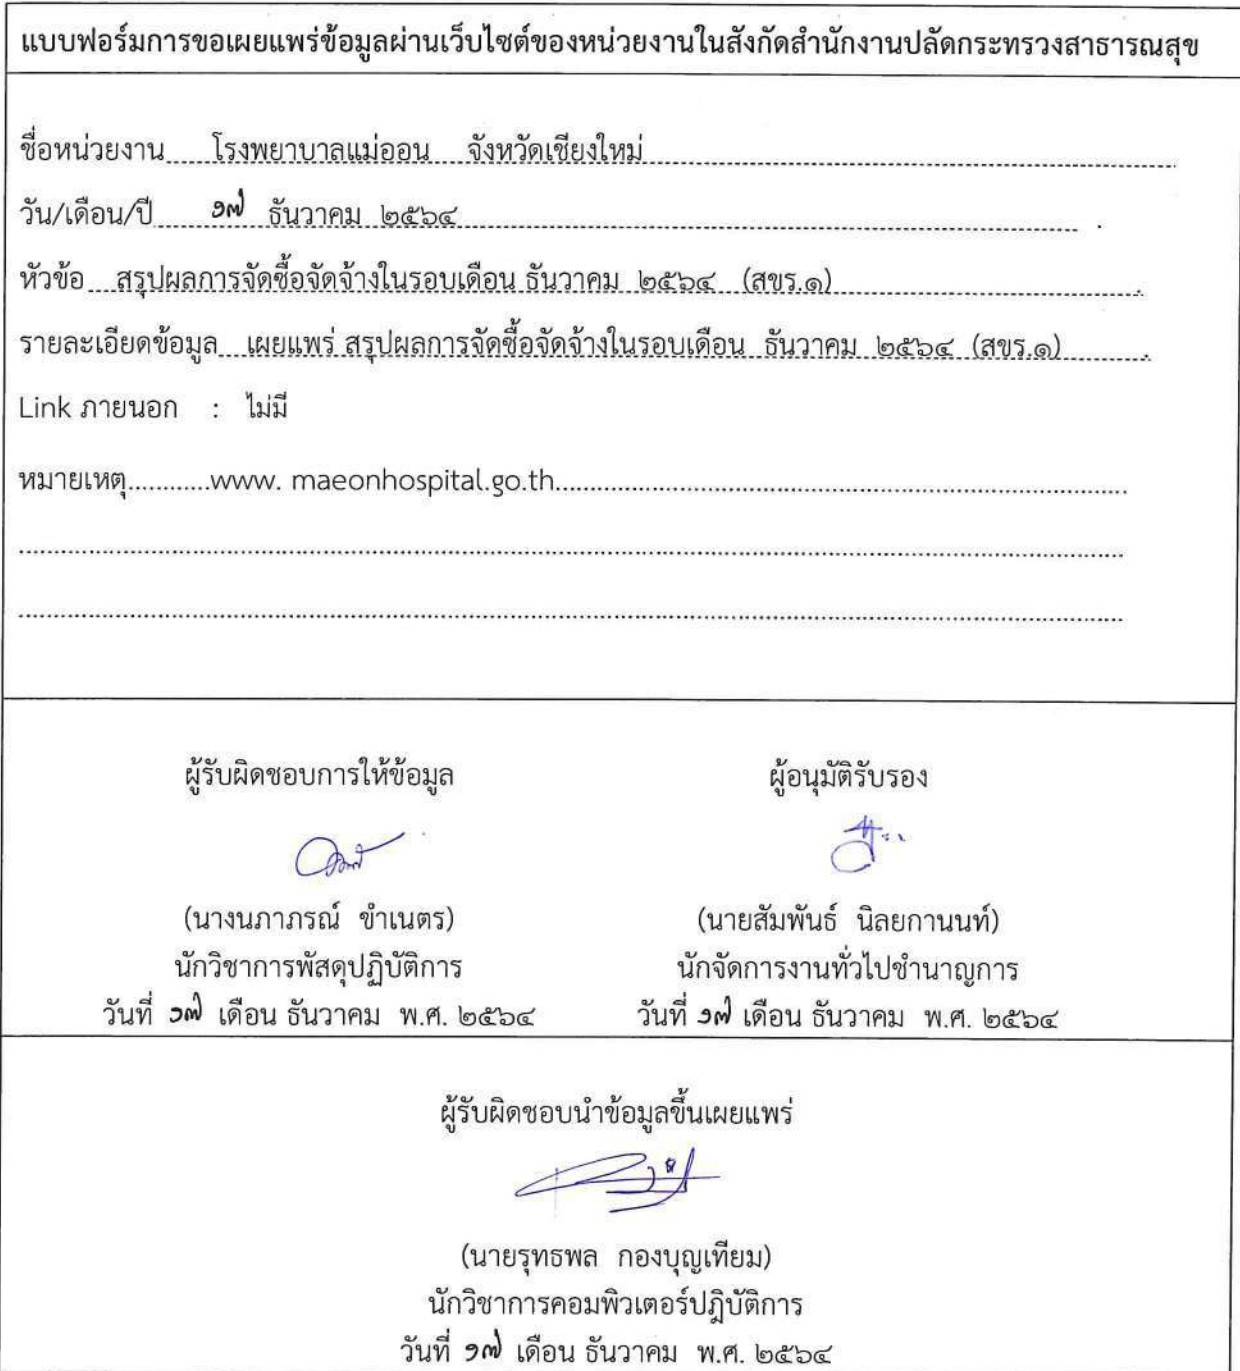 แบบฟอร์มการขอเผยแพร่ข้อมูลผ่านเว็บไซต์ของหน่วยงานในสังกัดสำนักงานปลัดกระทรวงสาธารณสุข
ชื่อหน่วยงาน.....โรงพยาบาลแม่ออน จังหวัดเชียงใหม่.....
วัน/เดือน/ปี.....๑๗ ธันวาคม ๒๕๖๔.....
หัวข้อ....สรุปผลการจัดซื้อจัดจ้างในรอบเดือน ธันวาคม ๒๕๖๔ (สขร.๑).....
รายละเอียดข้อมูล....เผยแพร่ สรุปผลการจัดซื้อจัดจ้างในรอบเดือน ธันวาคม ๒๕๖๔ (สขร.๑).....
Link ภายนอก : ไม่มี
หมายเหตุ............www. maeonhospital.go.th............
ผู้รับผิดชอบการให้ข้อมูล ผู้อนุมัติรับรอง
(นางนภาภรณ์ ขำเนตร) (นายสัมพันธ์ นิลยกานนท์)
นักวิชาการพัสดุปฏิบัติการ นักจัดการงานทั่วไปชำนาญการ
วันที่ ๑๗ เดือน ธันวาคม พ.ศ. ๒๕๖๔ วันที่ ๑๗ เดือน ธันวาคม พ.ศ. ๒๕๖๔
ผู้รับผิดชอบนำข้อมูลขึ้นเผยแพร่
(นายรุทธพล กองบุญเทียม)
นักวิชาการคอมพิวเตอร์ปฏิบัติการ
วันที่ ๑๗ เดือน ธันวาคม พ.ศ. ๒๕๖๔